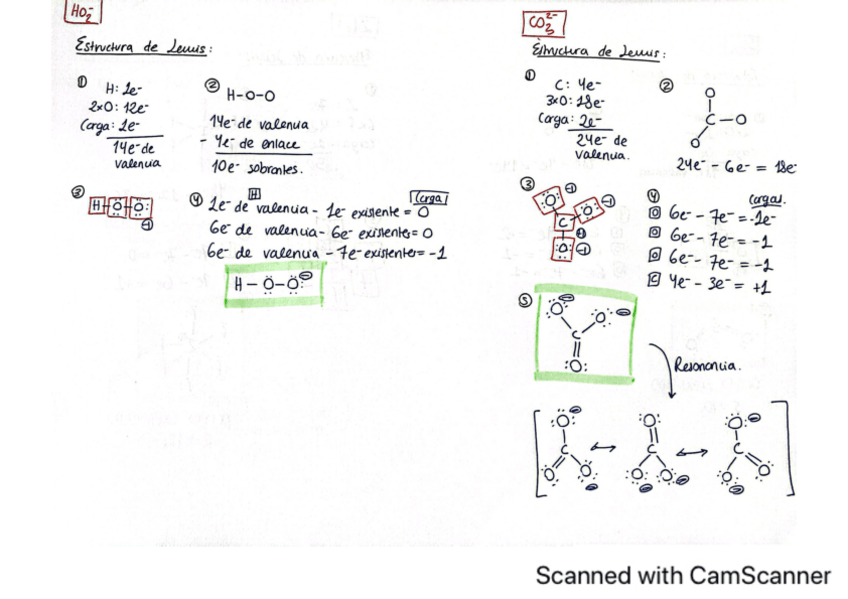 HO₂⁻
Estructura de Lewis:
① H: 1e⁻
2xO: 12e⁻
Carga: 1e⁻
14e⁻ de
valencia
② H-O-O
14e⁻ de valencia
- 4e⁻ de enlace
10e⁻ sobrantes.
③ H-O-O
-1
④ H Carga
1e⁻ de valencia - 1e⁻ existente = 0
6e⁻ de valencia - 6e⁻ existentes = 0
6e⁻ de valencia - 7e⁻ existentes = -1
H-O-O⊖
CO₃²⁻
Estructura de Lewis:
① C: 4e⁻
3xO: 18e⁻
Carga: 2e⁻
24e⁻ de
valencia.
②
O
C-O
O
24e⁻ - 6e⁻ = 18e⁻
③
O -1 O -1
C +1
O -1
④ cargas.
O 6e⁻ - 7e⁻ = -1e⁻
O 6e⁻ - 7e⁻ = -1
O 6e⁻ - 7e⁻ = -1
C 4e⁻ - 3e⁻ = +1
⑤
O⊖ O⊖
C
O
Resonancia.
O⊖ O O⊖
C ↔ C ↔ C
O O⊖ O⊖ O⊖ O⊖ O
Scanned with CamScanner